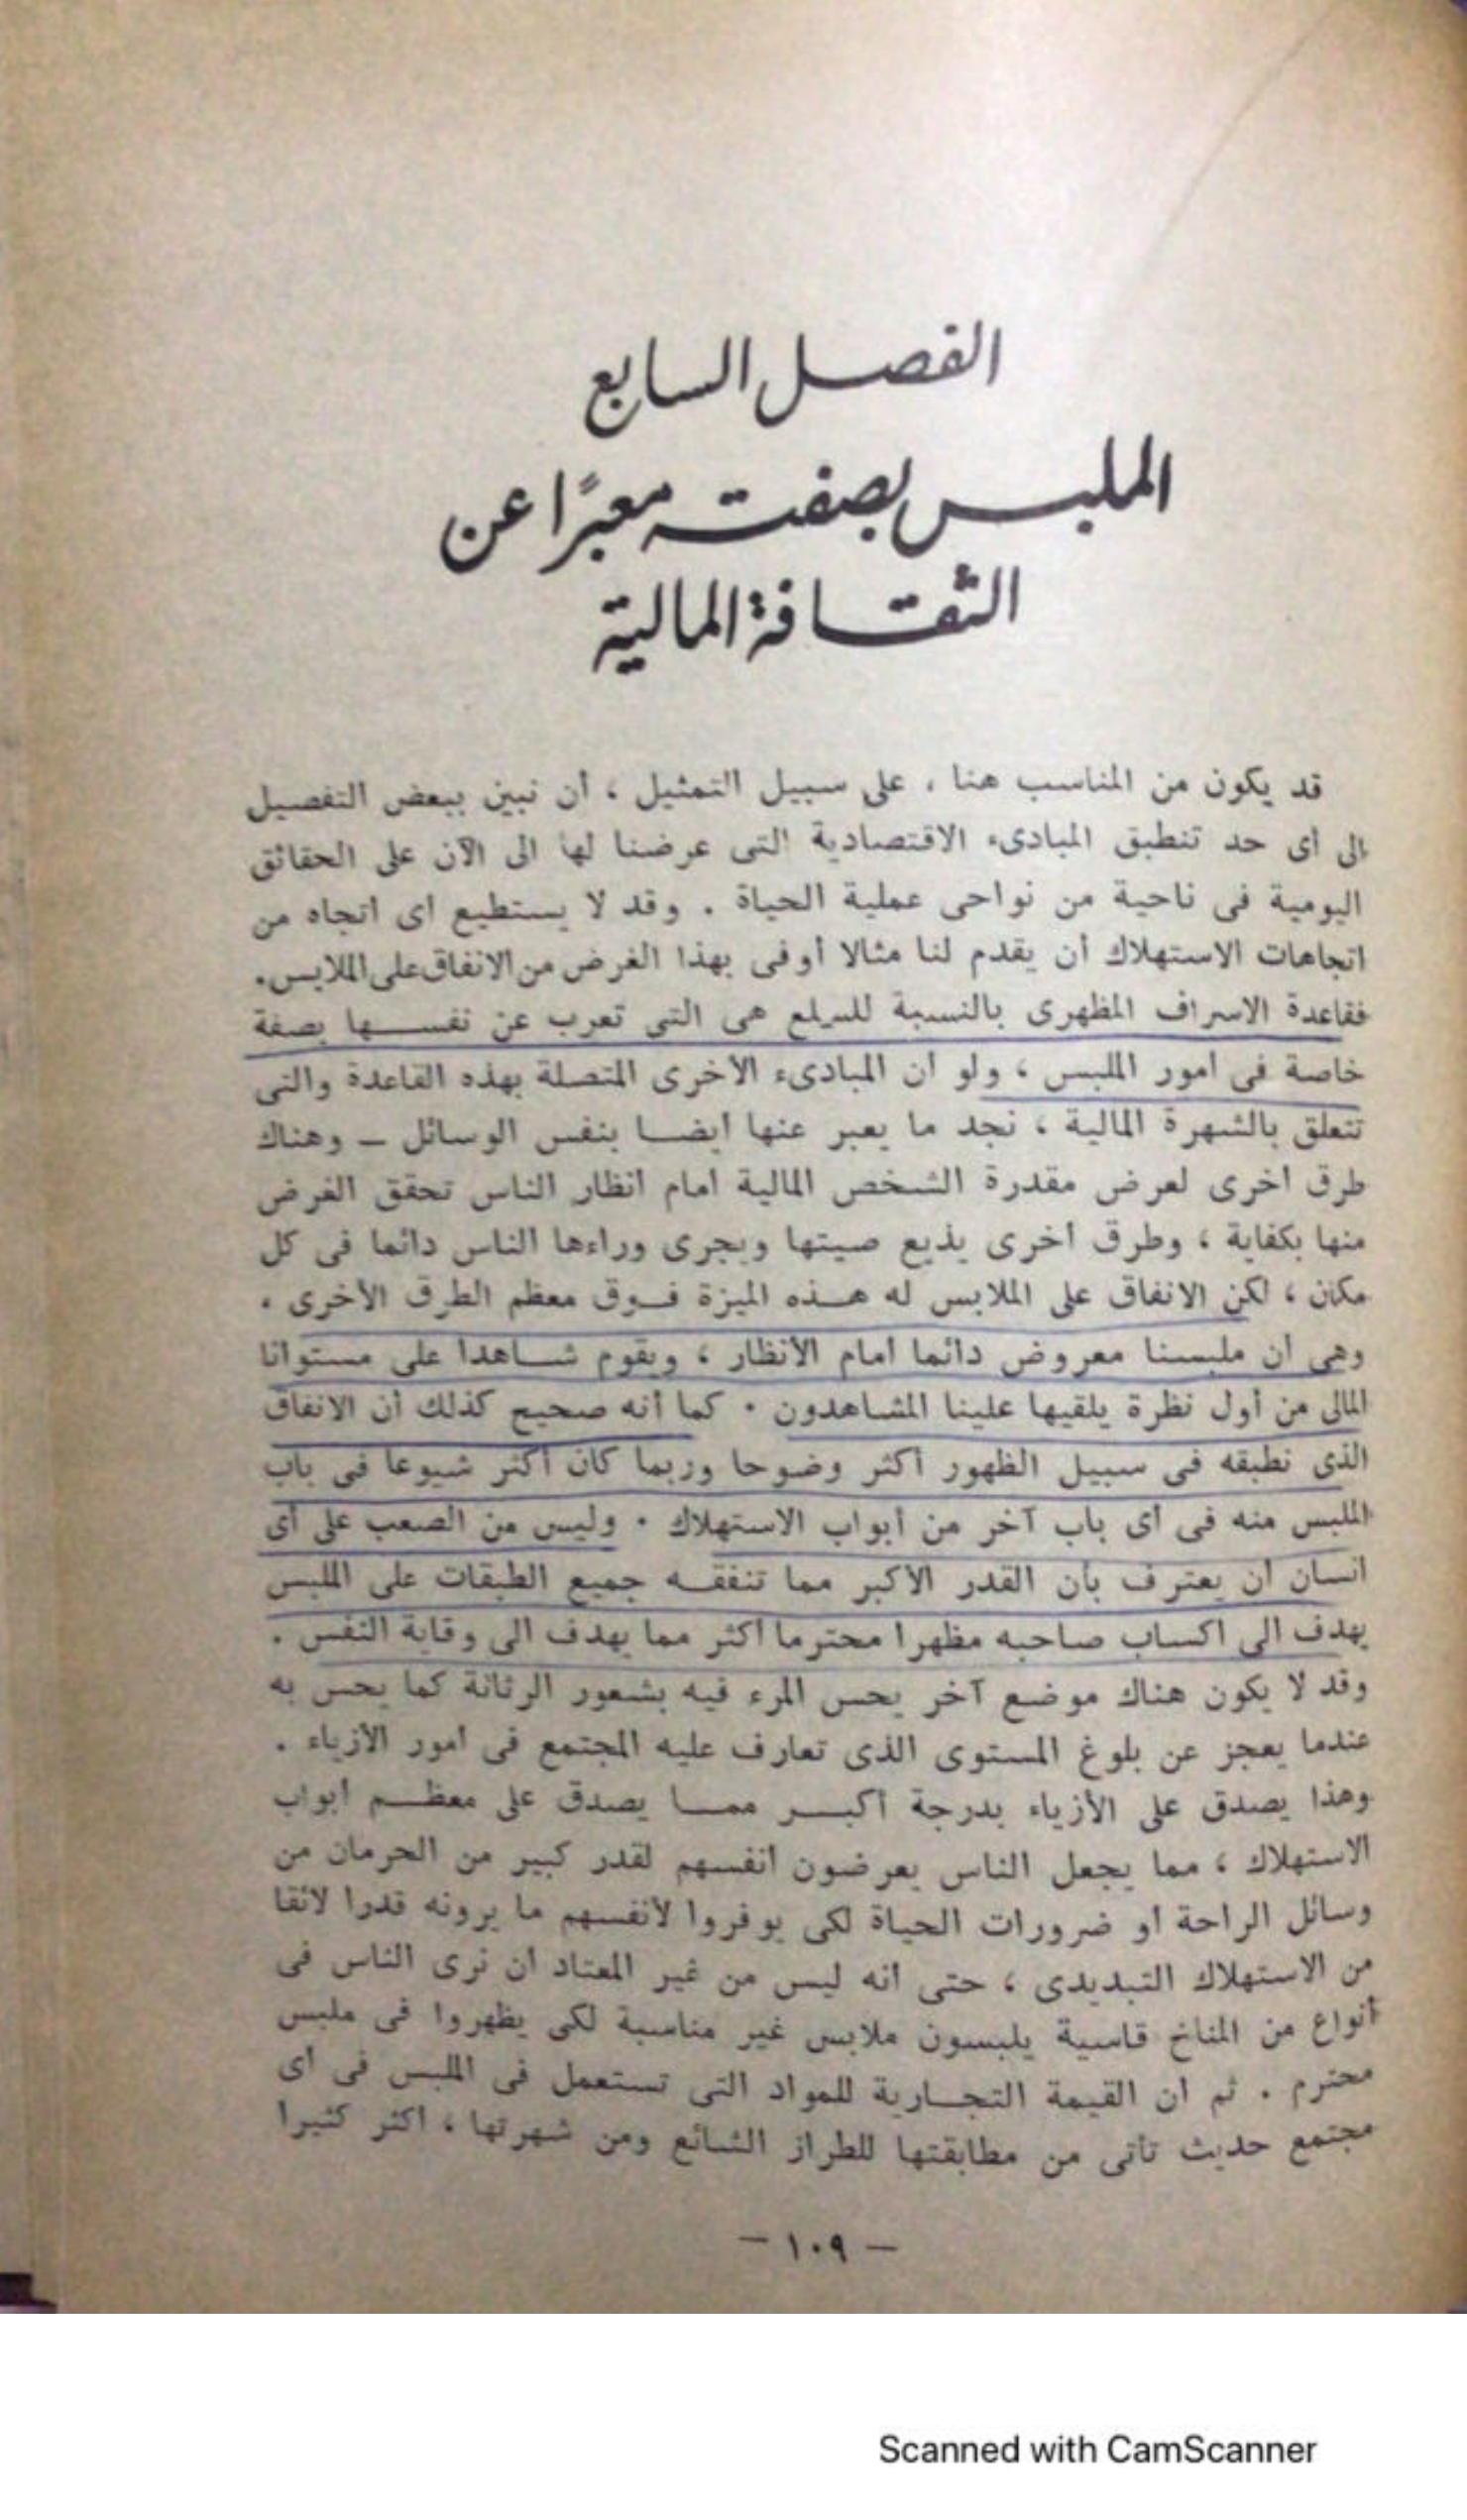 الفصل السابع
الملبس بصفته معبرًا عن
الثقافة المالية
قد يكون من المناسب هنا ، على سبيل التمثيل ، أن نبين ببعض التفصيل
الى أى حد تنطبق المبادىء الاقتصادية التى عرضنا لها الى الآن على الحقائق
اليومية فى ناحية من نواحى عملية الحياة . وقد لا يستطيع اى اتجاه من
اتجاهات الاستهلاك أن يقدم لنا مثالا أوفى بهذا الغرض من الانفاق على الملابس.
فقاعدة الاسراف المظهرى بالنسبة للسلع هى التى تعرب عن نفسها بصفة
خاصة فى امور الملبس ، ولو ان المبادىء الاخرى المتصلة بهذه القاعدة والتى
تتعلق بالشهرة المالية ، نجد ما يعبر عنها ايضا بنفس الوسائل – وهناك
طرق اخرى لعرض مقدرة الشخص المالية امام انظار الناس تحقق الغرض
منها بكفاية ، وطرق اخرى يذيع صيتها ويجرى وراءها الناس دائما فى كل
مكان ، لكن الانفاق على الملابس له هذه الميزة فوق معظم الطرق الأخرى .
وهى ان ملبسنا معروض دائما امام الأنظار ، ويقوم شاهدا على مستوانا
المالى من أول نظرة يلقيها علينا المشاهدون . كما أنه صحيح كذلك أن الانفاق
الذى نطبقه فى سبيل الظهور أكثر وضوحا وربما كان أكثر شيوعا فى باب
الملبس منه فى أى باب آخر من أبواب الاستهلاك . وليس من الصعب على أى
انسان ان يعترف بأن القدر الأكبر مما تنفقه جميع الطبقات على الملبس
يهدف الى اكساب صاحبه مظهرا محترما أكثر مما يهدف الى وقاية النفس .
وقد لا يكون هناك موضع آخر يحس المرء فيه بشعور الرثاثة كما يحس به
عندما يعجز عن بلوغ المستوى الذى تعارف عليه المجتمع فى امور الأزياء .
وهذا يصدق على الأزياء بدرجة أكبر مما يصدق على معظم ابواب
الاستهلاك ، مما يجعل الناس يعرضون انفسهم لقدر كبير من الحرمان من
وسائل الراحة او ضرورات الحياة لكى يوفروا لأنفسهم ما يرونه قدرا لائقا
من الاستهلاك التبديدى ، حتى انه ليس من غير المعتاد ان نرى الناس فى
أنواع من المناخ قاسية يلبسون ملابس غير مناسبة لكى يظهروا فى ملبس
محترم . ثم ان القيمة التجارية للمواد التى تستعمل فى الملبس فى اى
مجتمع حديث تأتى من مطابقتها للطراز الشائع ومن شهرتها ، اكثر كثيرا
– ١٠٩ –
Scanned with CamScanner